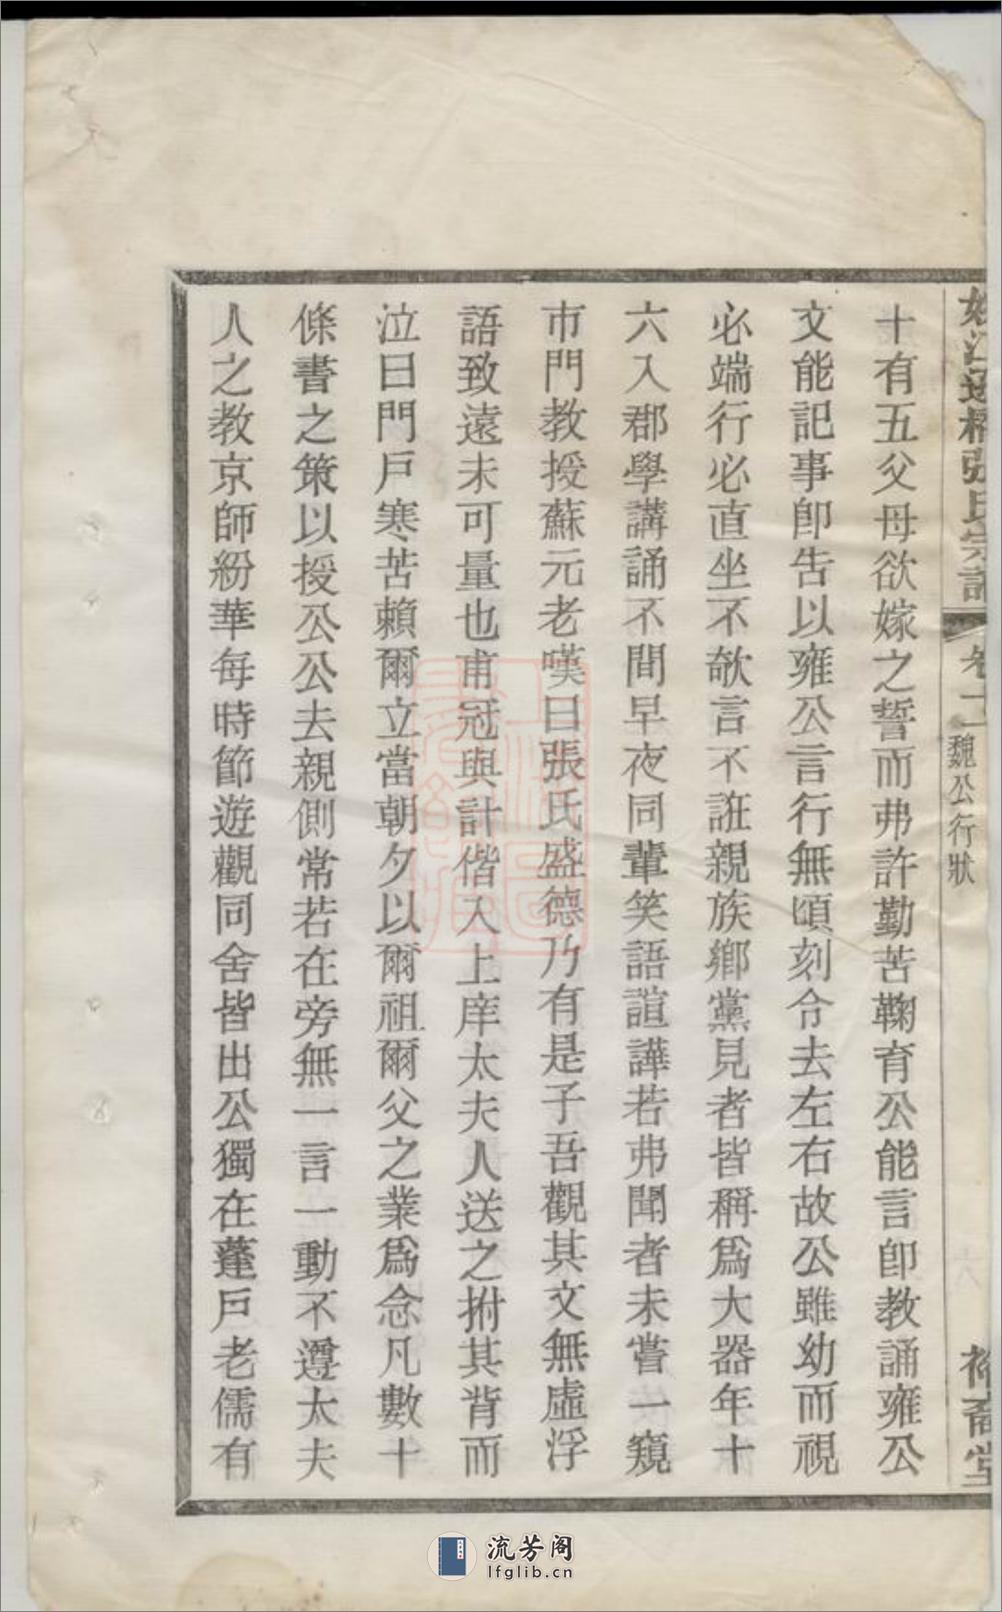 姚江邊橋張氏宗譜 卷十一 魏公行狀 裕齋堂
十有五父母欲嫁之誓而弗許勤苦鞠育公能言即教誦雍公
文能記事即告以雍公言行無頃刻令去左右故公雖幼而視
必端行必直坐不欹言不誑親族鄉黨見者皆稱爲大器年十
六入郡學講誦不間早夜同輩笑語諠譁若弗聞者未嘗一窺
市門教授蘇元老嘆曰張氏盛德乃有是子吾觀其文無虛浮
語致遠未可量也甫冠與計偕入上庠太夫人送之拊其背而
泣曰門戶寒苦賴爾立當朝夕以爾祖爾父之業爲念凡數十
條書之策以授公公去親側常若在旁無一言一動不遵太夫
人之教京師紛華每時節遊觀同舍皆出公獨在蓬戶老儒有
流芳阁
lfglib.cn